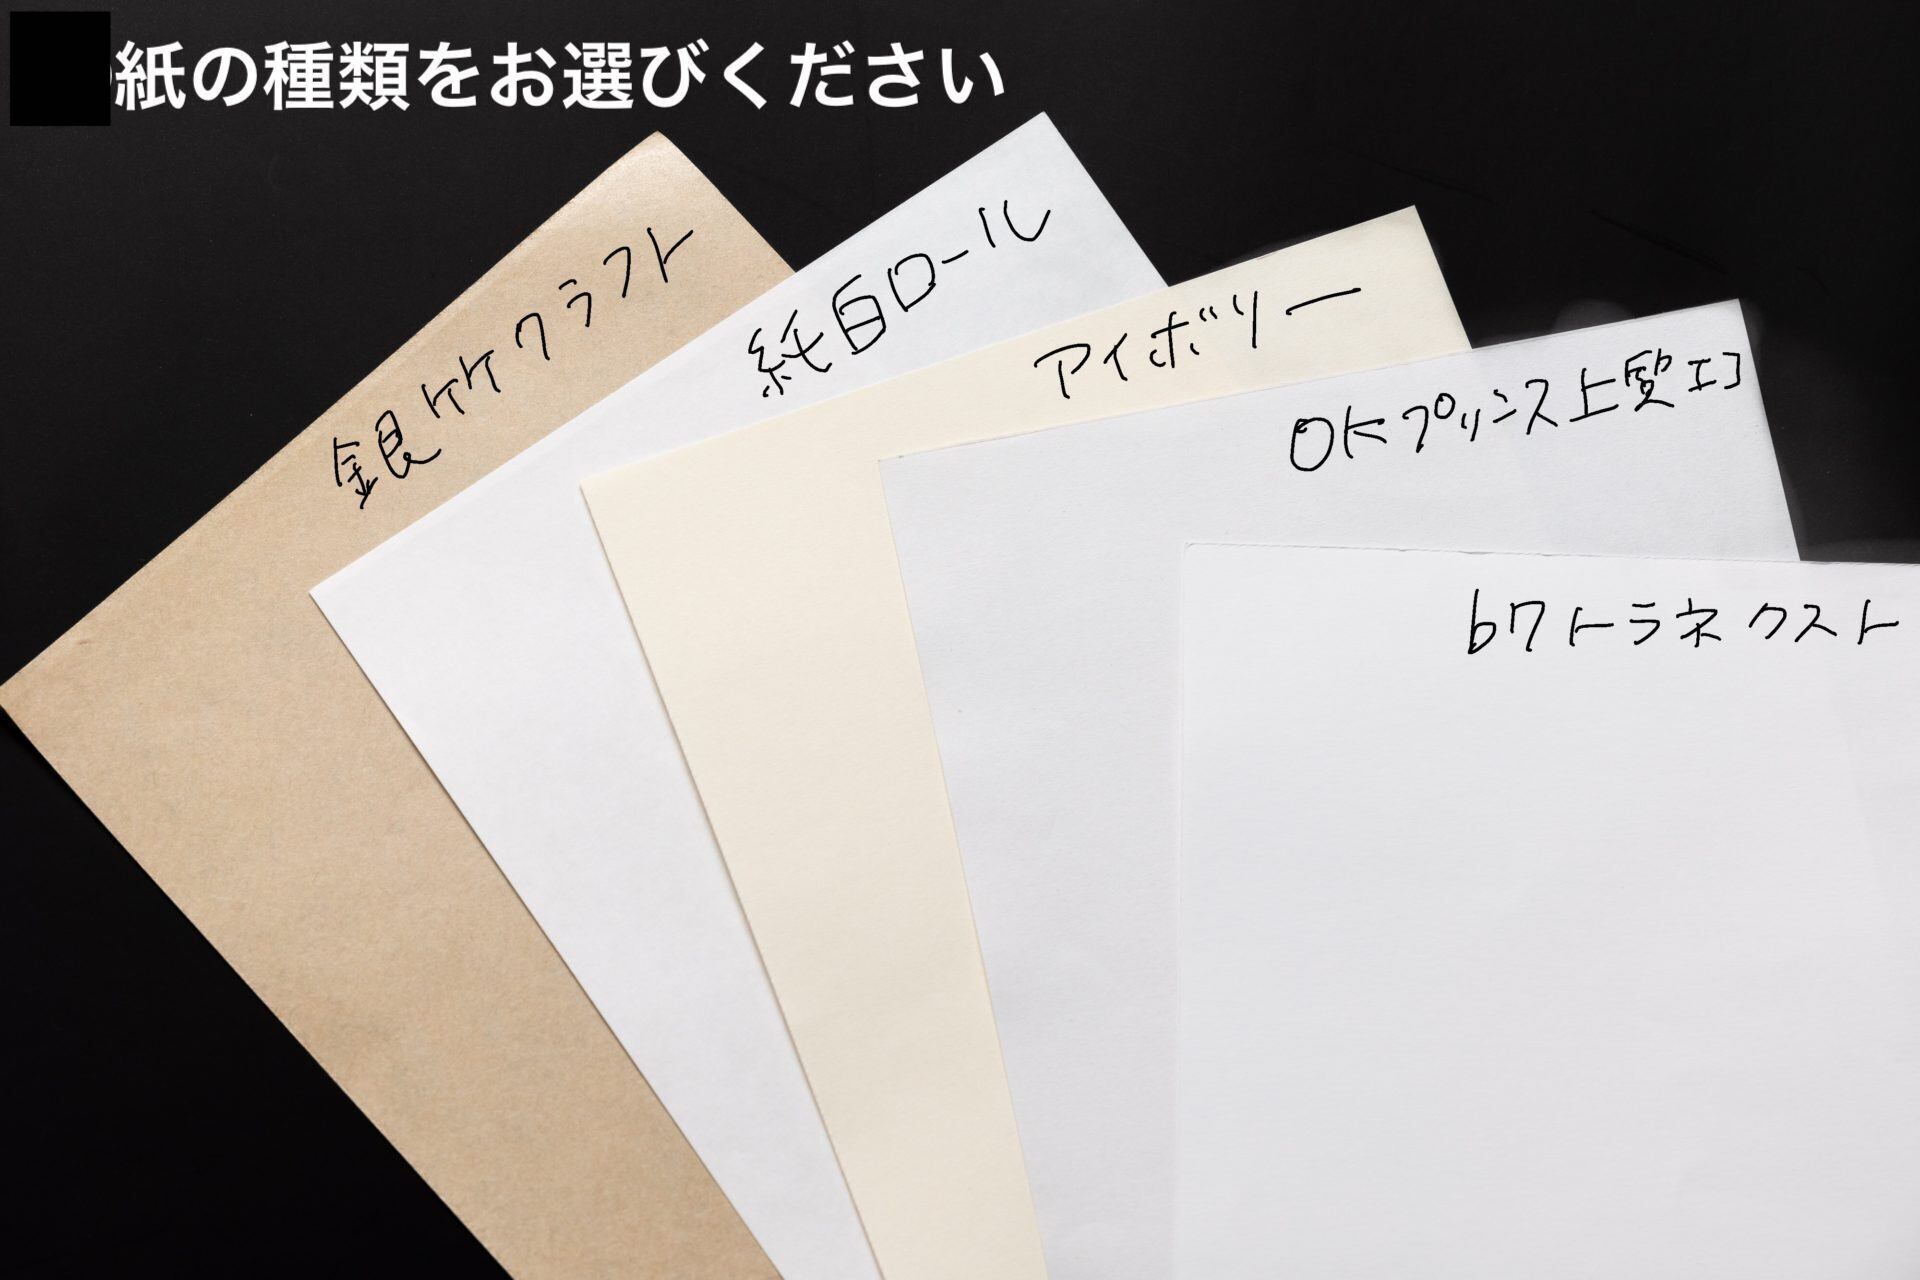 紙の種類をお選びください
銀竹クラフト
純白ロール
アイボリー
OKプリンス上質エコ
b7トラネクスト